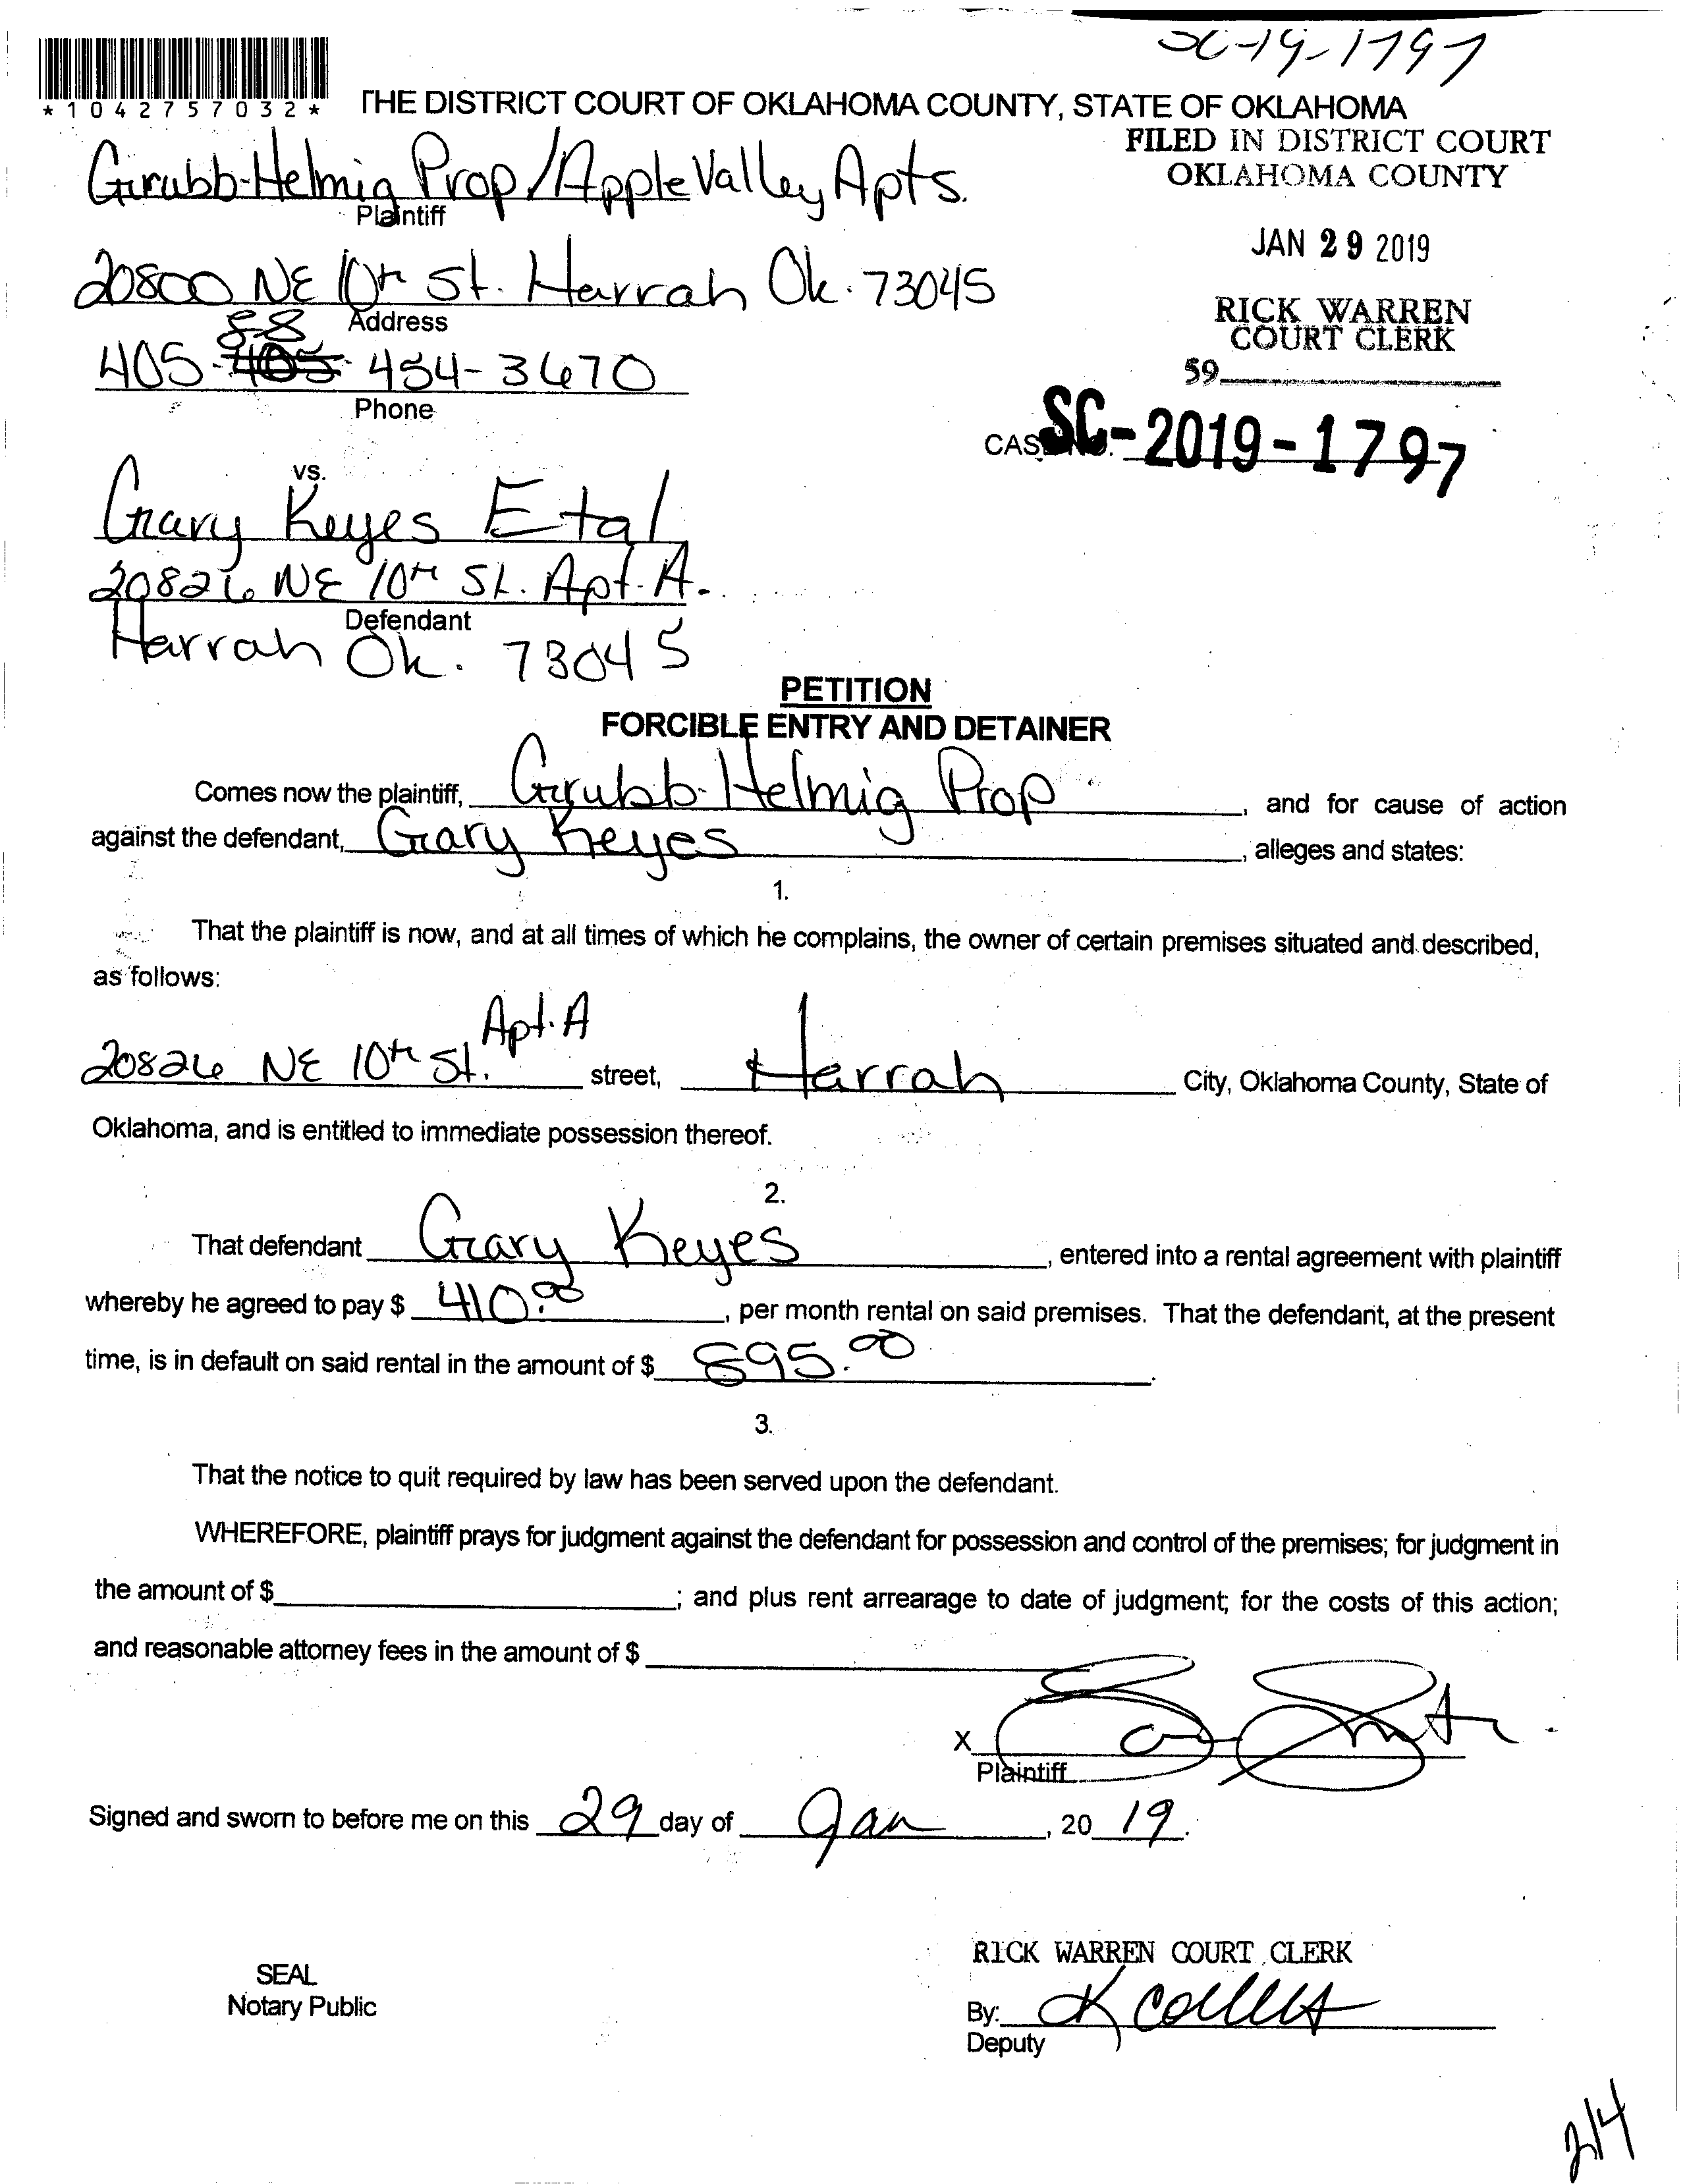 SC-19-1797
*1042757032*
THE DISTRICT COURT OF OKLAHOMA COUNTY, STATE OF OKLAHOMA
FILED IN DISTRICT COURT
OKLAHOMA COUNTY
JAN 29 2019
RICK WARREN
COURT CLERK
59
Grubb-Helmig Prop/Apple Valley Apts.
Plaintiff
20800 NE 10th St. Harrah Ok. 73045
Address
88
405-454-3670
Phone
CASE NO. SC-2019-1797
vs.
Gary Keyes Etal
20826 NE 10th St. Apt. A.
Defendant
Harrah Ok. 73045
PETITION
FORCIBLE ENTRY AND DETAINER
Comes now the plaintiff, Grubb-Helmig Prop, and for cause of action
against the defendant, Gary Keyes, alleges and states:
1.
That the plaintiff is now, and at all times of which he complains, the owner of certain premises situated and described,
as follows:
Apt. A
20826 NE 10th St. street, Harrah City, Oklahoma County, State of
Oklahoma, and is entitled to immediate possession thereof.
2.
That defendant Gary Keyes, entered into a rental agreement with plaintiff
whereby he agreed to pay $ 410.00, per month rental on said premises. That the defendant, at the present
time, is in default on said rental in the amount of $ 895.00.
3.
That the notice to quit required by law has been served upon the defendant.
WHEREFORE, plaintiff prays for judgment against the defendant for possession and control of the premises; for judgment in
the amount of $ ; and plus rent arrearage to date of judgment; for the costs of this action;
and reasonable attorney fees in the amount of $
X
Plaintiff
Signed and sworn to before me on this 29 day of Jan, 20 19.
RICK WARREN COURT CLERK
SEAL
Notary Public
By:
Deputy
2/4